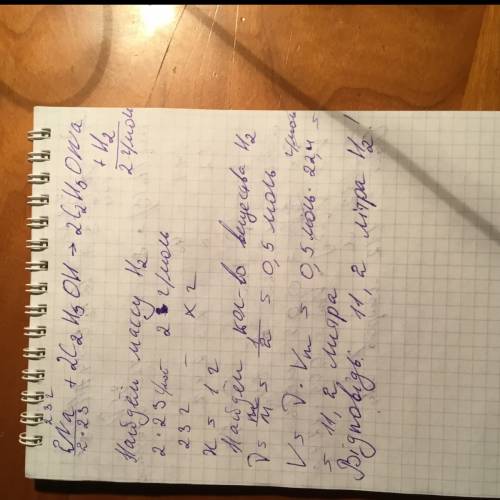 23 г
2Na + 2C₂H₅OH → 2C₂H₅ONa
2·23
+ H₂
2 г/моль
Найдём массу H₂
2·23 г/моль – 2 г/моль
23 г – x г
x = 1 г
Найдем кол-во вещества H₂
ν = m/M = 1/2 = 0,5 моль
V = ν · Vm = 0,5 моль · 22,4 л/моль =
= 11,2 литра
Відповідь: 11,2 літра H₂!